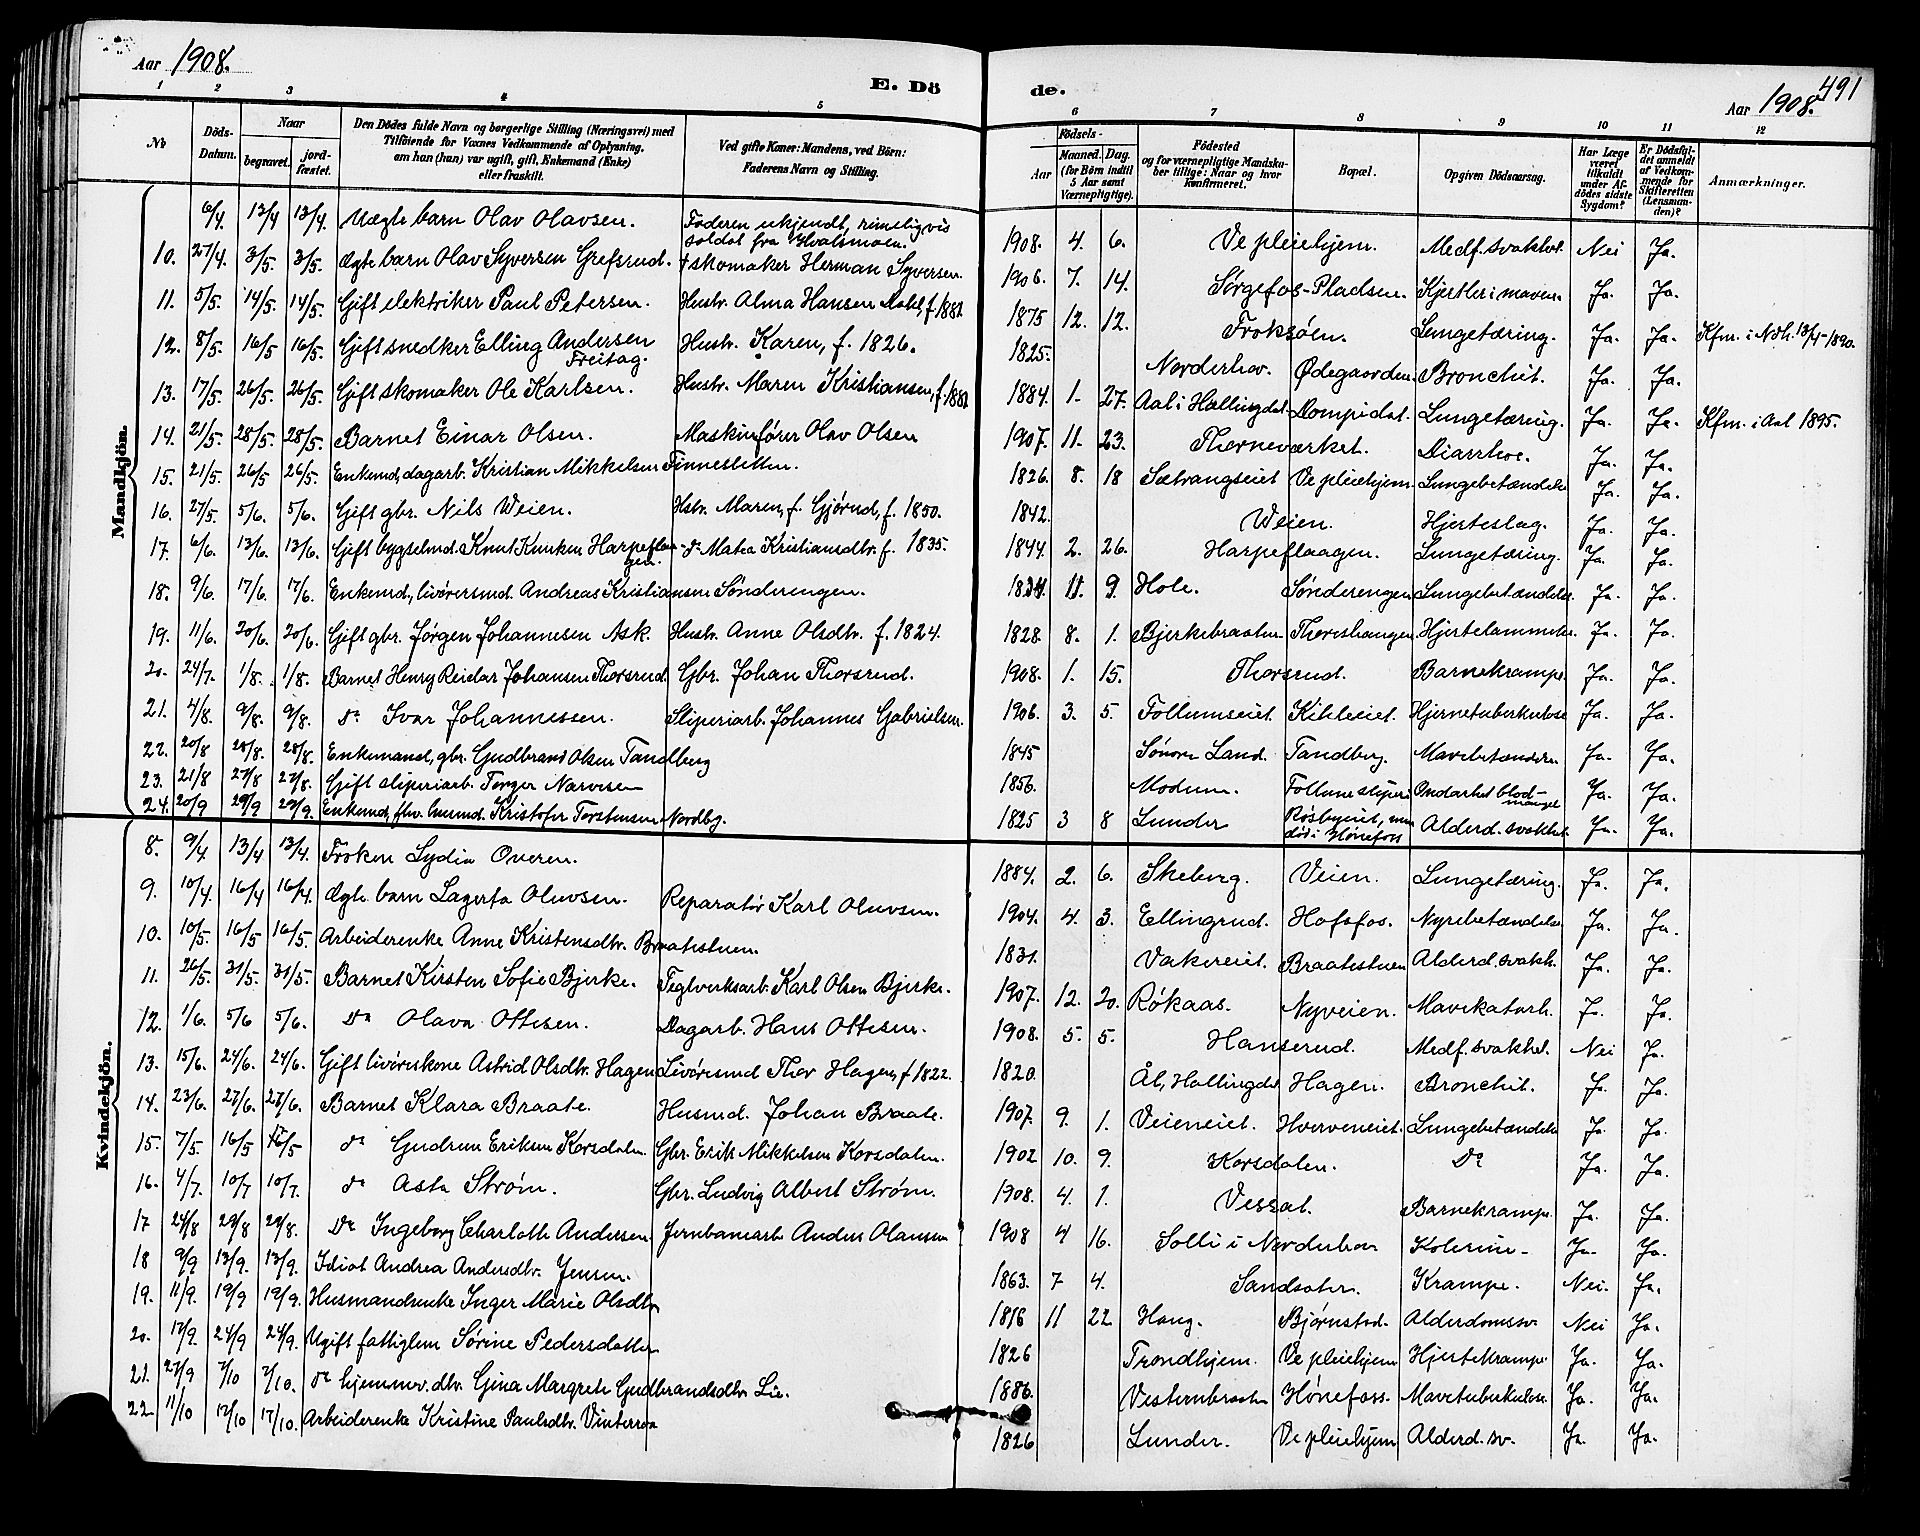 Aar 1908.
E. Dö
de.
Aar 1908.
491
1 2 3 4 5 6 7 8 9 10 11 12
No
Döds-Datum.
Naar
begravet.
jordfæstet.
Den Dödes fulde Navn og borgerlige Stilling (Næringsvei) med
Tilföiende for Voxnes Vedkommende af Oplysning,
om han (hun) var ugift, gift, Enkemand (Enke)
eller fraskilt.
Ved gifte Koner: Mandens, ved Börn:
Faderens Navn og Stilling.
Födsels-
Aar
Maaned. Dag.
(for Börn indtil
5 Aar samt
Værnepligtige).
Födested
og for værnepligtige Mandskaber tillige: Naar og hvor
konfirmeret.
Bopæl.
Opgiven Dödsaarsag.
Har Læge
været
tilkaldt
under Afdödes sidste
Sygdom?
Er Dödsfaldet anmeldt
af Vedkommende for
Skifteretten
(Lensmanden)?
Anmærkninger.
Mandkjön.
6/4 13/4 13/4. Uægte barn Olav Olavsen. Faderen ukjendt, rimeligvis soldat fra Hvalsmoen. 1908. 4. 6. Ve pleiehjem. Medf. svakhet Nei Ja.
10. 27/4. 3/5. 3/5. Ægte barn Olav Syversen Grefsrud. † skomaker Herman Syversen. 1906. 7. 14. Sørgefos-Pladsen. Kjertler i maven. Ja. Ja.
11. 5/5. 14/5. 14/5. Gift elektriker Paul Petersen. Hustr. Alma Hansen f. 1882 1875 12. 12. Froksøen. Lungetæring. Ja. Ja. Kfm. i Ndh. 13/4-1890.
12. 8/5. 16/5 16/5. Gift snedker Elling Andersen Freitag. Hustr. Karen, f. 1826. 1825. Norderhov. Ødegaarden. Bronchit. Ja. Ja.
13. 17/5. 26/5. 26/5. Gift skomaker Ole Karlsen. Hustr. Maren Kristiansen, f. 1882 1884. 1. 27. Aal i Hallingdal. Dompidal. Lungetæring. Ja. Ja. Kfm. i Aal 1895.
14. 21/5. 28/5. 28/5. Barnet Einar Olsen. Maskinfører Olav Olsen 1907. 11. 23. Therneværket. Diarrhoe. Ja. Ja.
15. 21/5. 26/5 26/5. Enkemd, dagarb. Kristian Mikkelsen Finneslitten. 1826. 8. 18 Sætrangseiet Ve pleiehjem Lungebetændelse Ja. Ja.
16. 27/5. 5/6. 5/6. Gift gbr. Nils Weien. Hstr. Maren, f. Gjørud, f. 1850. 1842. Weien. Hjerteslag. Ja. Ja.
17. 6/6. 13/6. 13/6. Gift bygselmd. Knut Knutsen Harpeflaagen. dr Matea Kristiansdtr. f. 1835. 1844. 2. 26. Harpeflaagen. Lungetæring. Ja. Ja.
18. 9/6. 17/6. 17/6. Enkemd, livøresmd. Andreas Kristiansen Sønderengen. 1834. 11. 9. Hole. Sønderengen Lungebetændelse. Ja. Ja.
19. 11/6. 20/6. 20/6. Gift gbr. Jørgen Johannesen Ask. Hustr. Anne Olsdtr. f. 1824. 1828. 8. 1. Bjerkebraaten Thereshaugen Hjertelammelse. Ja. Ja.
20. 24/7. 1/8. 1/8. Barnet Henry Reidar Johansen Thorsrud. Gbr. Johan Thorsrud. 1908. 1. 15. Thorsrud. Barnekrampe. Ja. Ja.
21. 4/8. 9/8. 9/8. dr Ivar Johannessen. Sliperiarb. Johannes Gabrielsen. 1906. 3. 5. Follumseiet. Kihleeiet. Hjernetuberkulose Ja. Ja.
22. 20/8 28/8. 28/8. Enkemand, gbr. Gudbrand Olsen Tandberg 1845 Søndre Land. Tandberg. Mavebetændelse Ja. Ja.
23. 21/8 27/8 27/8. Gift sliperiarb. Torger Narvesen 1856. Modum. Follum sliperi Ondartet blodmangel Ja. Ja.
24. 20/9 29/9 29/9. Enkemd, fhv. husmd. Kristofer Torstensen Nordby. 1825 3 8 Lunder Røsbyeiet, men død i Hønefoss Alderd. svakhet Ja. Ja.
Kvindekjön.
8. 9/4 13/4 13/4. Frøken Lydia Overen. 1884. 2. 6. Skeberg. Veien. Lungetæring. Ja. Ja.
9. 10/4. 16/4 16/4. Ægte barn Lagerta Oluvsen. Reparatør Karl Oluvsen. 1904. 4. 3. Ellingrud. Hofsfos. Nyrebetændelse Ja. Ja.
10. 10/5. 16/5 16/5. Arbeiderenke Anne Kristensdtr. Braatestuen. 1831. Vakereiet. Braatestuen Alderd. svakh. Ja. Ja.
11. 26/5. 31/5. 31/5. Barnet Kirsten Sofie Bjerke. Teglverksarb. Karl Olsen Bjerke. 1907. 12. 20. Røkaas. Nyveien. Mavekatarh. Ja. Ja.
12. 1/6. 5/6 5/6. dr Olava Ottesen. Dagarb. Hans Ottesen. 1908. 5. 5. Hanserud. Medf. svakhet. Nei Ja.
13. 15/6. 24/6. 24/6. Gift livøreskone Astrid Olsdtr. Hagen Livøresmd Thor Hagen, f 1822. 1820. Ål, Hallingdal Hagen. Bronchit. Ja. Ja.
14. 23/6. 27/6. 27/6. Barnet Klara Braate. Husmd. Johan Braate. 1907. 9. 1. Veieneiet. Hverveneiet. Lungebetændelse Ja. Ja.
15. 7/5. 16/5 16/5 dr Gudrun Eriksen Korsdalen. Gbr. Erik Mikkelsen Korsdalen. 1902 10. 9. Korsdalen. Dr Ja. Ja.
16. 4/7. 10/7 10/7. dr Asta Strøm. Gbr. Ludvig Albert Strøm. 1908. 4. 1. Vessal. Barnekrampe. Ja. Ja.
17 24/8 29/8 29/8. Dr Ingeborg Charlotte Andersen. Jernbanearb Anders Olausen 1908 4 16. Solli i Norderhov Kolerine- Ja. Ja.
18 9/9 13/9. 13/9. Idiot Andrea Andersdtr. Jensen. 1863. 7 4. Sandsæter. Krampe. Nei. Ja.
19. 11/9. 19/9 19/9. Husmandsenke Inger Marie Olsdtr 1816 11 22 Haug. Bjørnstad. Alderdomssv. Nei Ja.
20. 17/9. 24/9 24/9. Ugift fattiglem Sørine Pedersdatter 1826 Trondhjem. Ve pleiehjem Hjertekrampe. Ja. Ja.
21. 27/9 2/10 2/10. dr hjemmev. dtr. Gina Margrete Gudbrandsdtr. Lie. 1886. Vesternbraaten Hønefoss. Mavetuberkulose. Ja. Ja.
22 11/10 17/10 17/10. Arbeiderenke Kristine Paulsdtr. Vinterroa 1826 Lunder. Ve pleiehjem Alderd. sv. Ja. Ja.